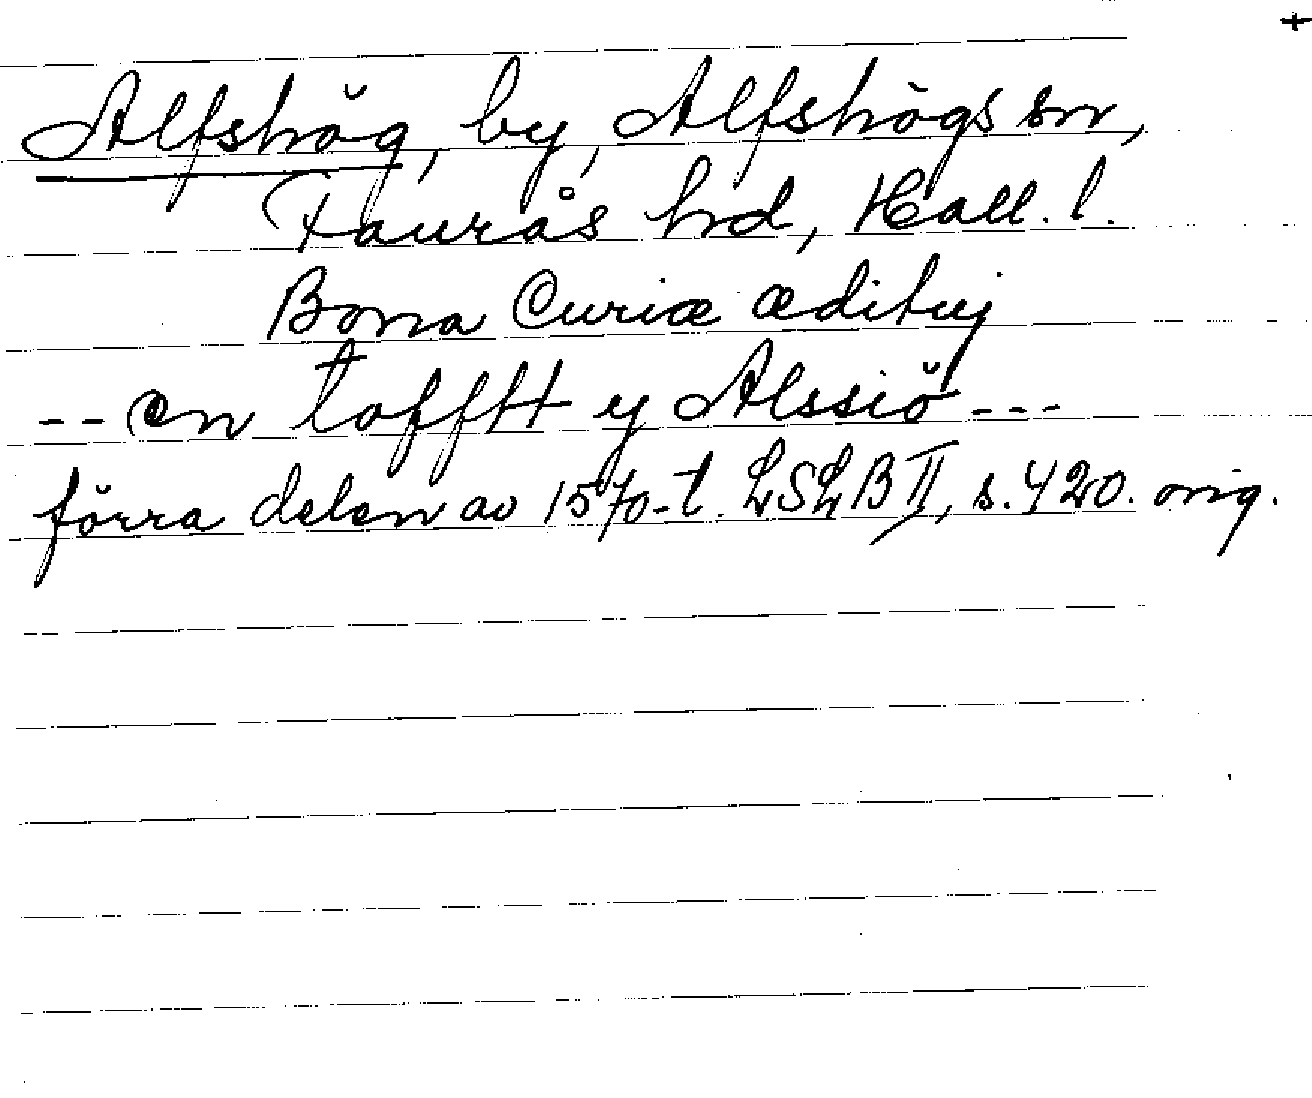 +
Alfshög, by, Alfshögs sn,
Faurås hd, Hall. l.
Bona Curiæ ædituj
-- en tofftt y Alssiö ---
förra delen av 1570-t. LSLB II, s. 420. orig.